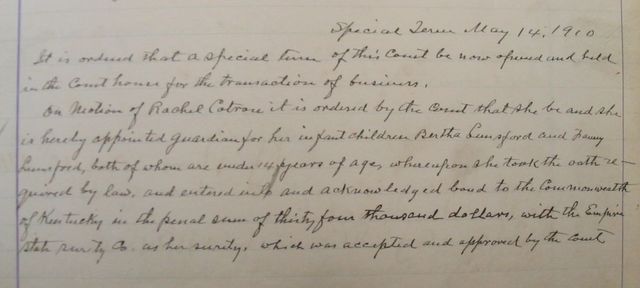 Special Term May 14, 1910
It is ordered that a special term of this Court be now opened and held
in the Court house for the transaction of business.
On Motion of Rachel Cotron it is ordered by the Court that she be and she
is hereby appointed guardian for her infant children Bertha Lunsford and Fanny
Lunsford, both of whom are under 14 years of age, whereupon she took the oath re-
quired by law, and entered into and acknowledged bond to the Commonwealth
of Kentucky in the penal sum of thirty four thousand dollars, with the Empire
state surity Co. as her surity, which was accepted and approved by the Court